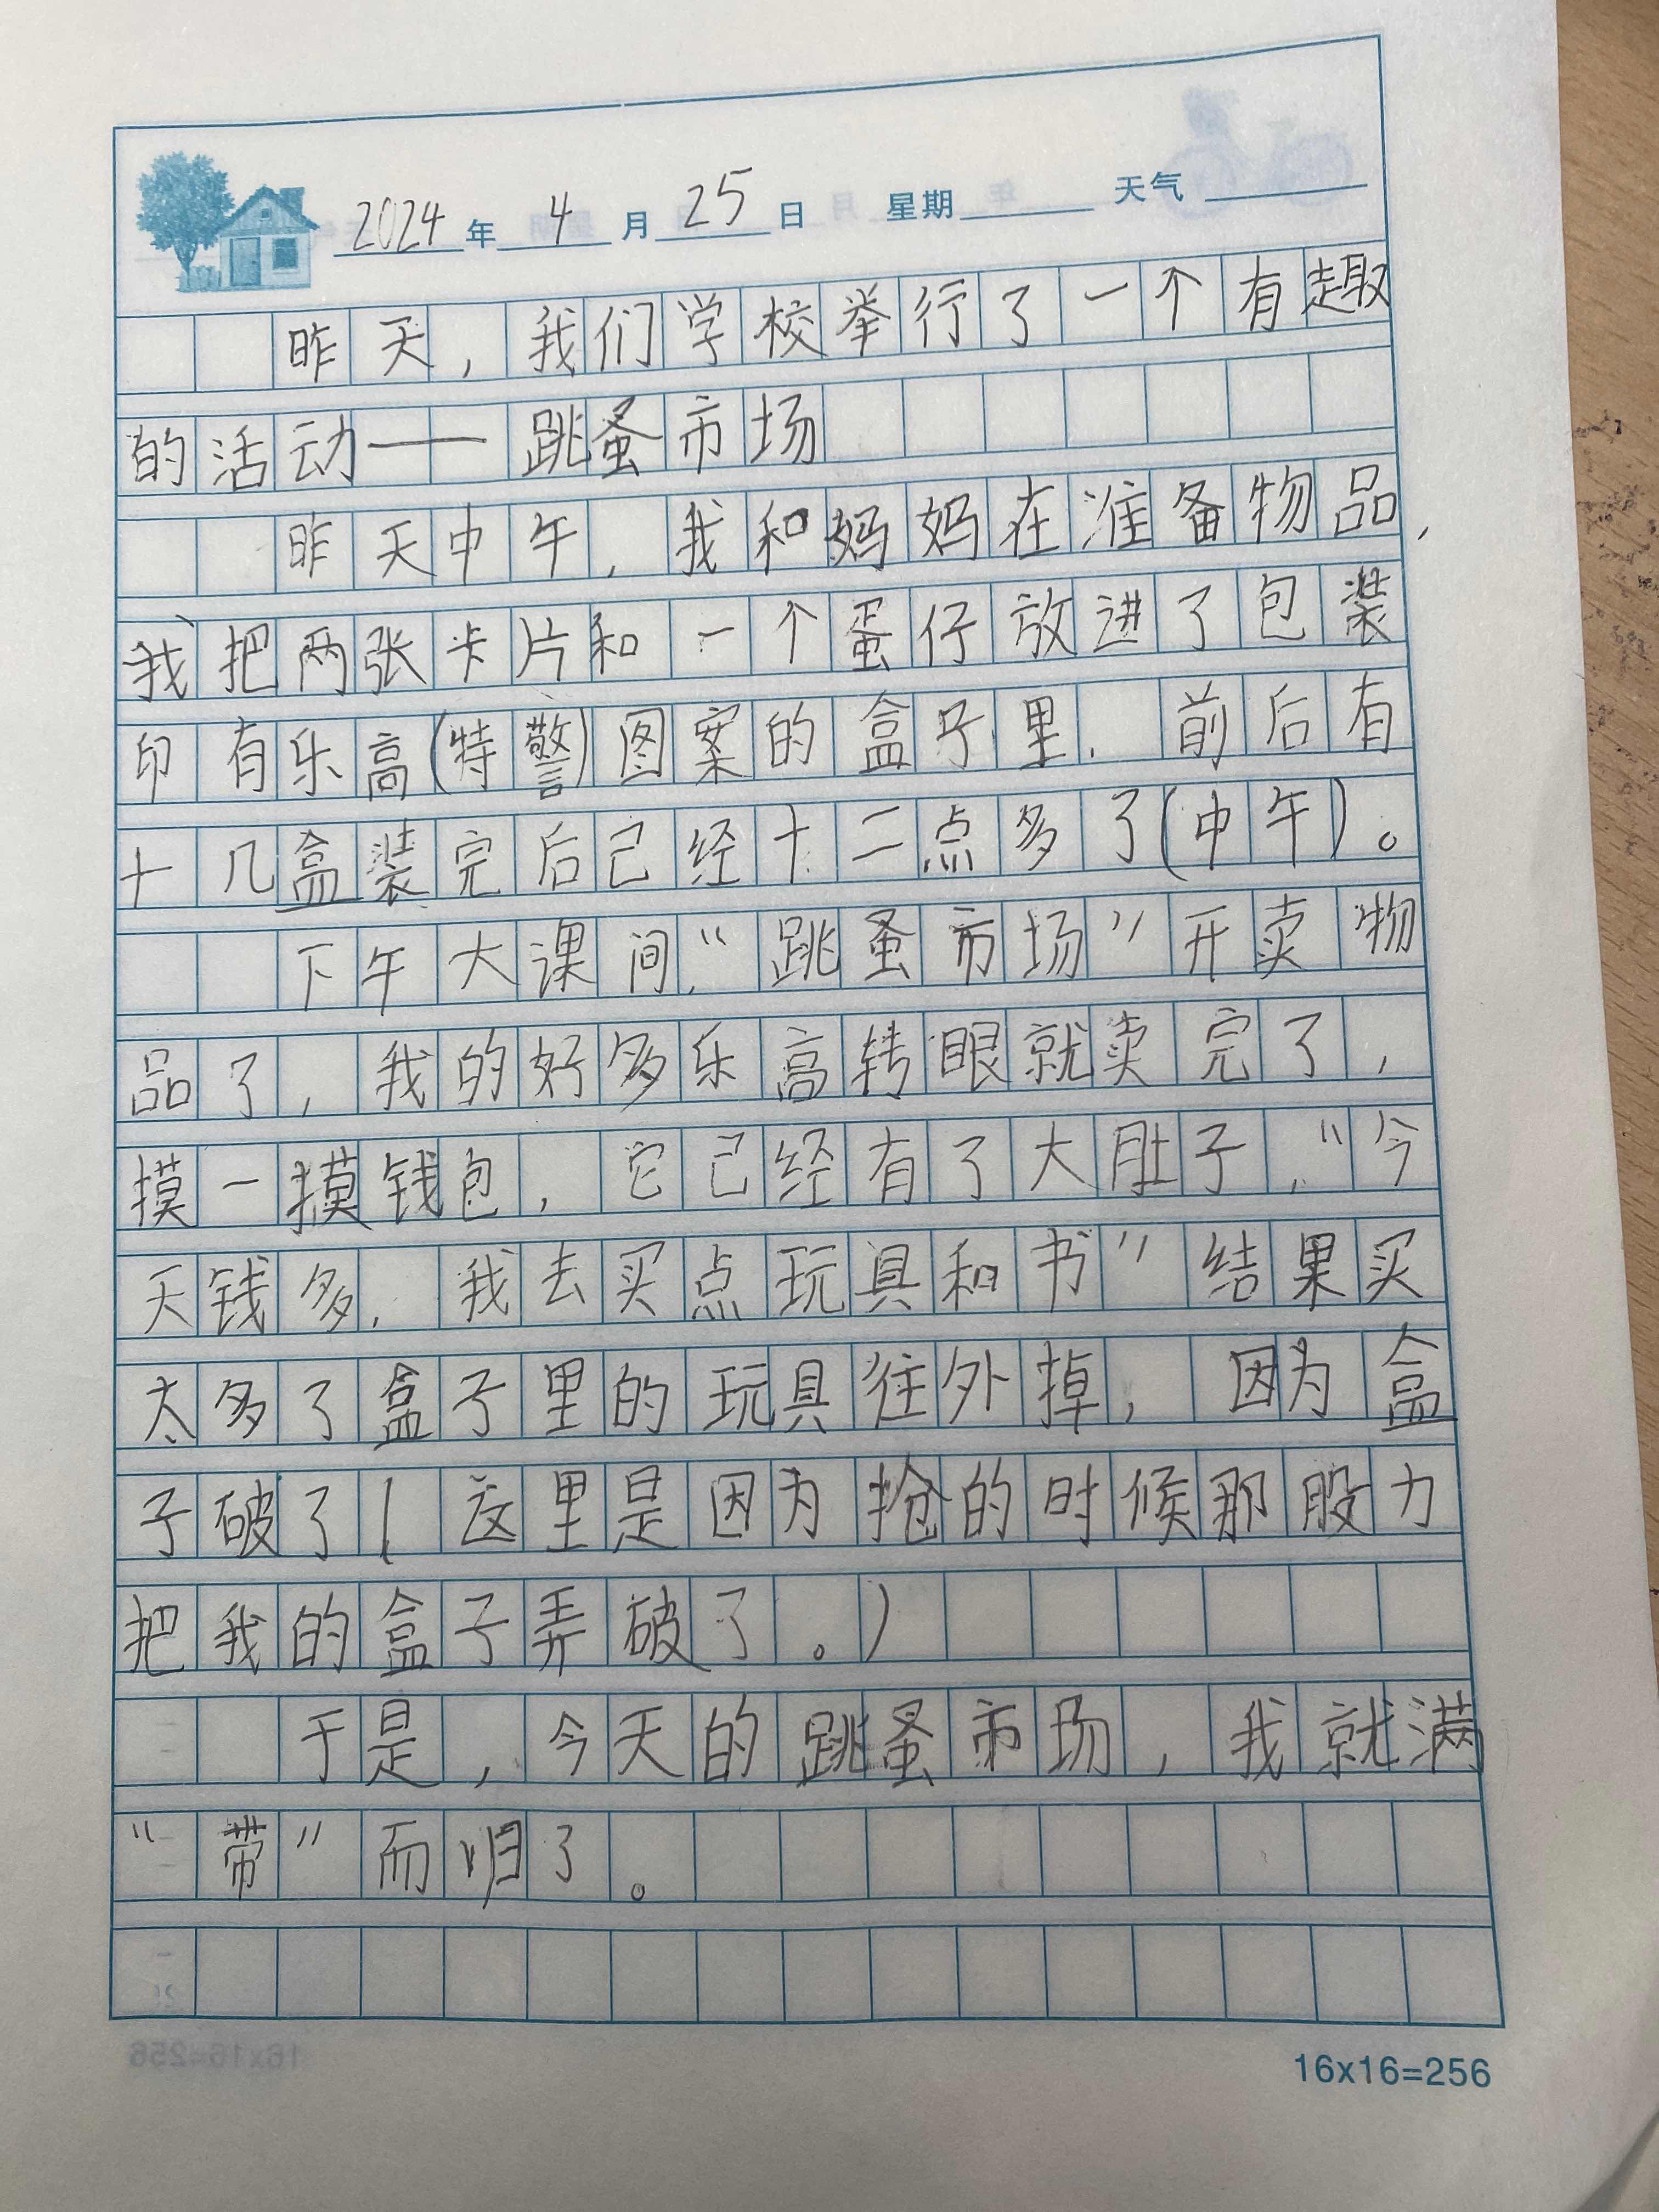 2024年4月25日 星期 天气
昨天，我们学校举行了一个有趣
的活动——跳蚤市场
昨天中午，我和妈妈在准备物品，
我把两张卡片和一个蛋仔放进了包装
印有乐高(特警)图案的盒子里，前后有
十几盒装完后己经十二点多了(中午)。
下午大课间，“跳蚤市场”开卖物
品了，我的好多乐高转眼就卖完了，
摸一摸钱包，它己经有了大肚子，“今
天钱多，我去买点玩具和书”结果买
太多了盒子里的玩具往外掉，因为盒
子破了(这里是因为抢的时候那股力
把我的盒子弄破了。)
于是，今天的跳蚤市场，我就满
“带”而归了。
16x16=256